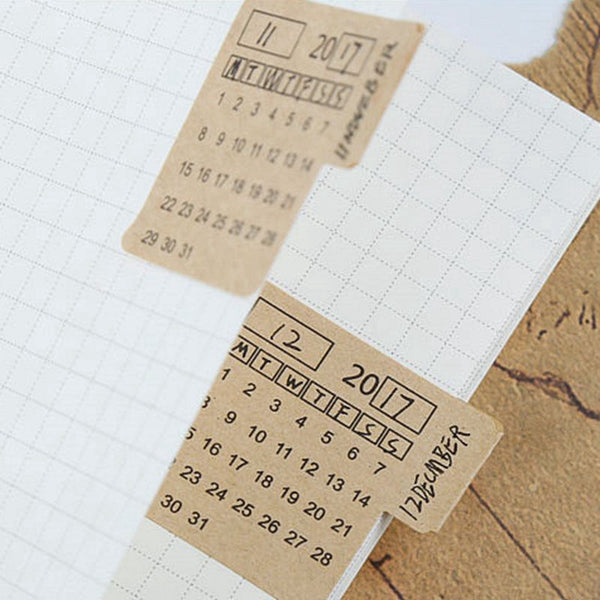 11 2017
M T W T F S S
1 2 3 4 5 6 7
8 9 10 11 12 13 14
15 16 17 18 19 20 21
22 23 24 25 26 27 28
29 30 31
11 NOVEMBER
12 2017
M T W T F S S
1 2 3 4 5 6 7
8 9 10 11 12 13 14
5 16 17 18 19 20 21
23 24 25 26 27 28
30 31
12 DECMBER